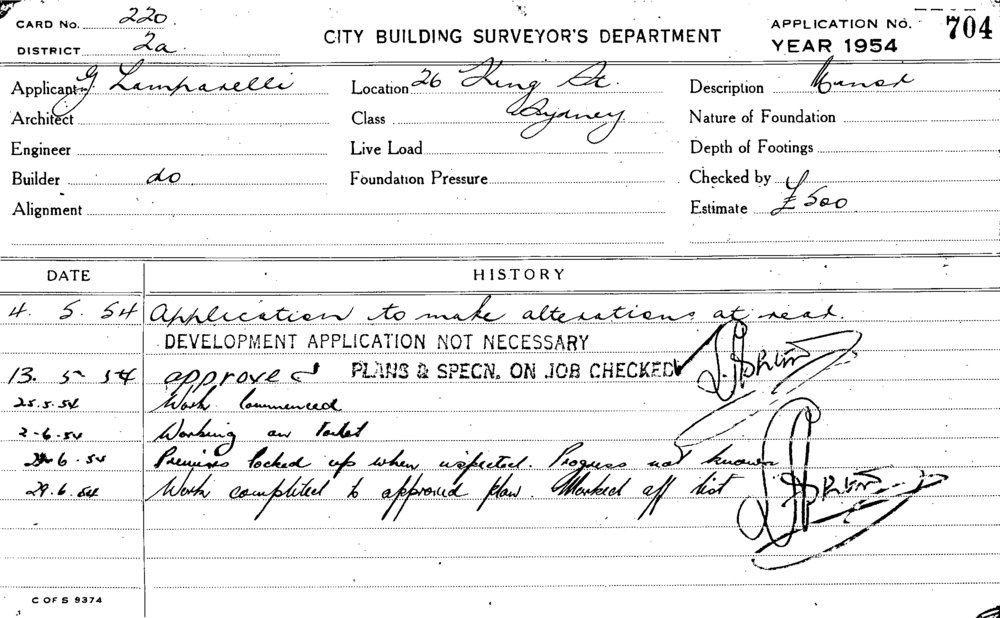 CARD No. 220 CITY BUILDING SURVEYOR'S DEPARTMENT APPLICATION No. 704
DISTRICT 2a YEAR 1954
Applicant G Lamparelli Location 26 King St. Description Minor
Architect Class Sydney Nature of Foundation
Engineer Live Load Depth of Footings
Builder do Foundation Pressure Checked by
Alignment Estimate £500
DATE HISTORY
4. 5. 54 Application to make alterations at rear.
DEVELOPMENT APPLICATION NOT NECESSARY
13. 5 54 approved PLANS & SPECN. ON JOB CHECKED
25.5.54 Work Commenced
2-6.54 Working on toilet
6.54 Premises locked up when inspected. Progress not known
29.6.54 Work completed to approved plan. Marked off list
C OF S 9374